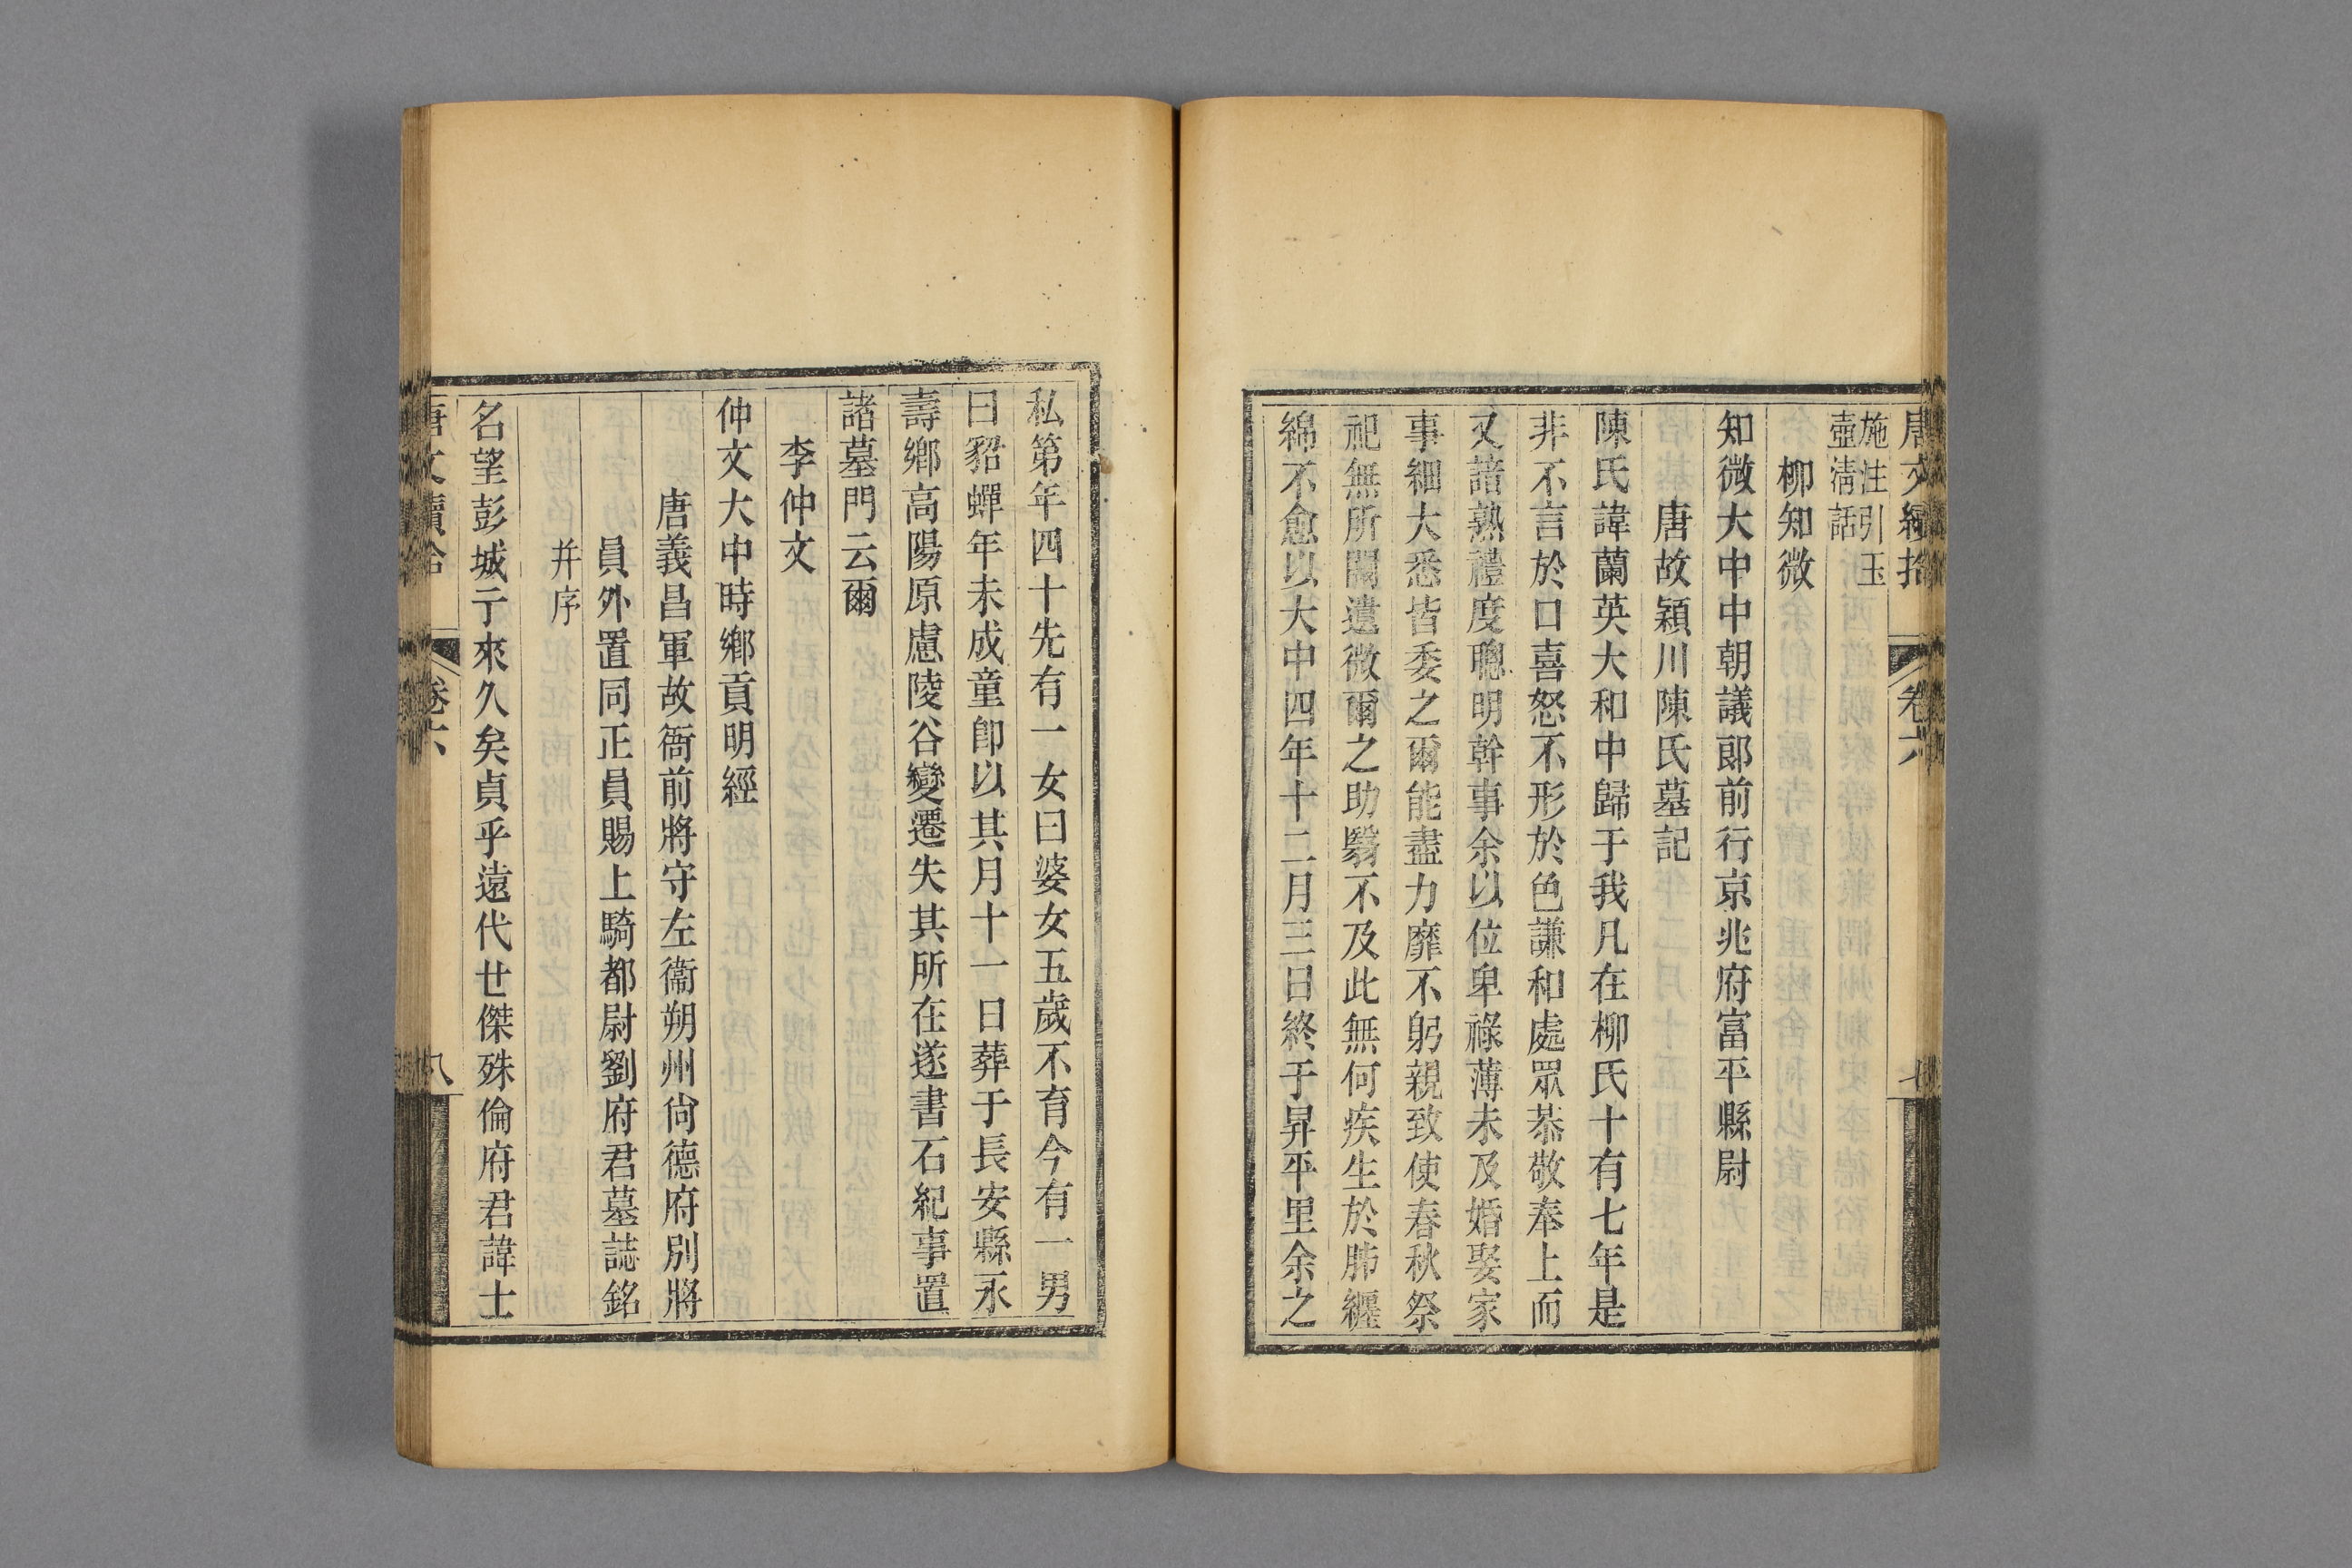 唐文續拾 卷六 七
施注引玉
壺淸話
柳知微
知微大中中朝議郞前行京兆府富平縣尉
唐故穎川陳氏墓記
陳氏諱蘭英大和中歸于我凡在柳氏十有七年是
非不言於口喜怒不形於色謙和處眾恭敬奉上而
又諳熟禮度聰明幹事余以位卑祿薄未及婚娶家
事細大悉皆委之爾能盡力靡不躬親致使春秋祭
祀無所闕遺微爾之助翳不及此無何疾生於肺纏
綿不愈以大中四年十二月三日終于昇平里余之
私第年四十先有一女曰婆女五歲不育今有一男
曰貂蟬年未成童卽以其月十一日葬于長安縣永
壽鄉高陽原慮陵谷變遷失其所在遂書石紀事置
諸墓門云爾
李仲文
仲文大中時鄉貢明經
唐義昌軍故衙前將守左衞朔州尙德府別將
員外置同正員賜上騎都尉劉府君墓誌銘
幷序
名望彭城亍來久矣貞乎遠代世傑殊倫府君諱士
唐文續拾 卷六 八